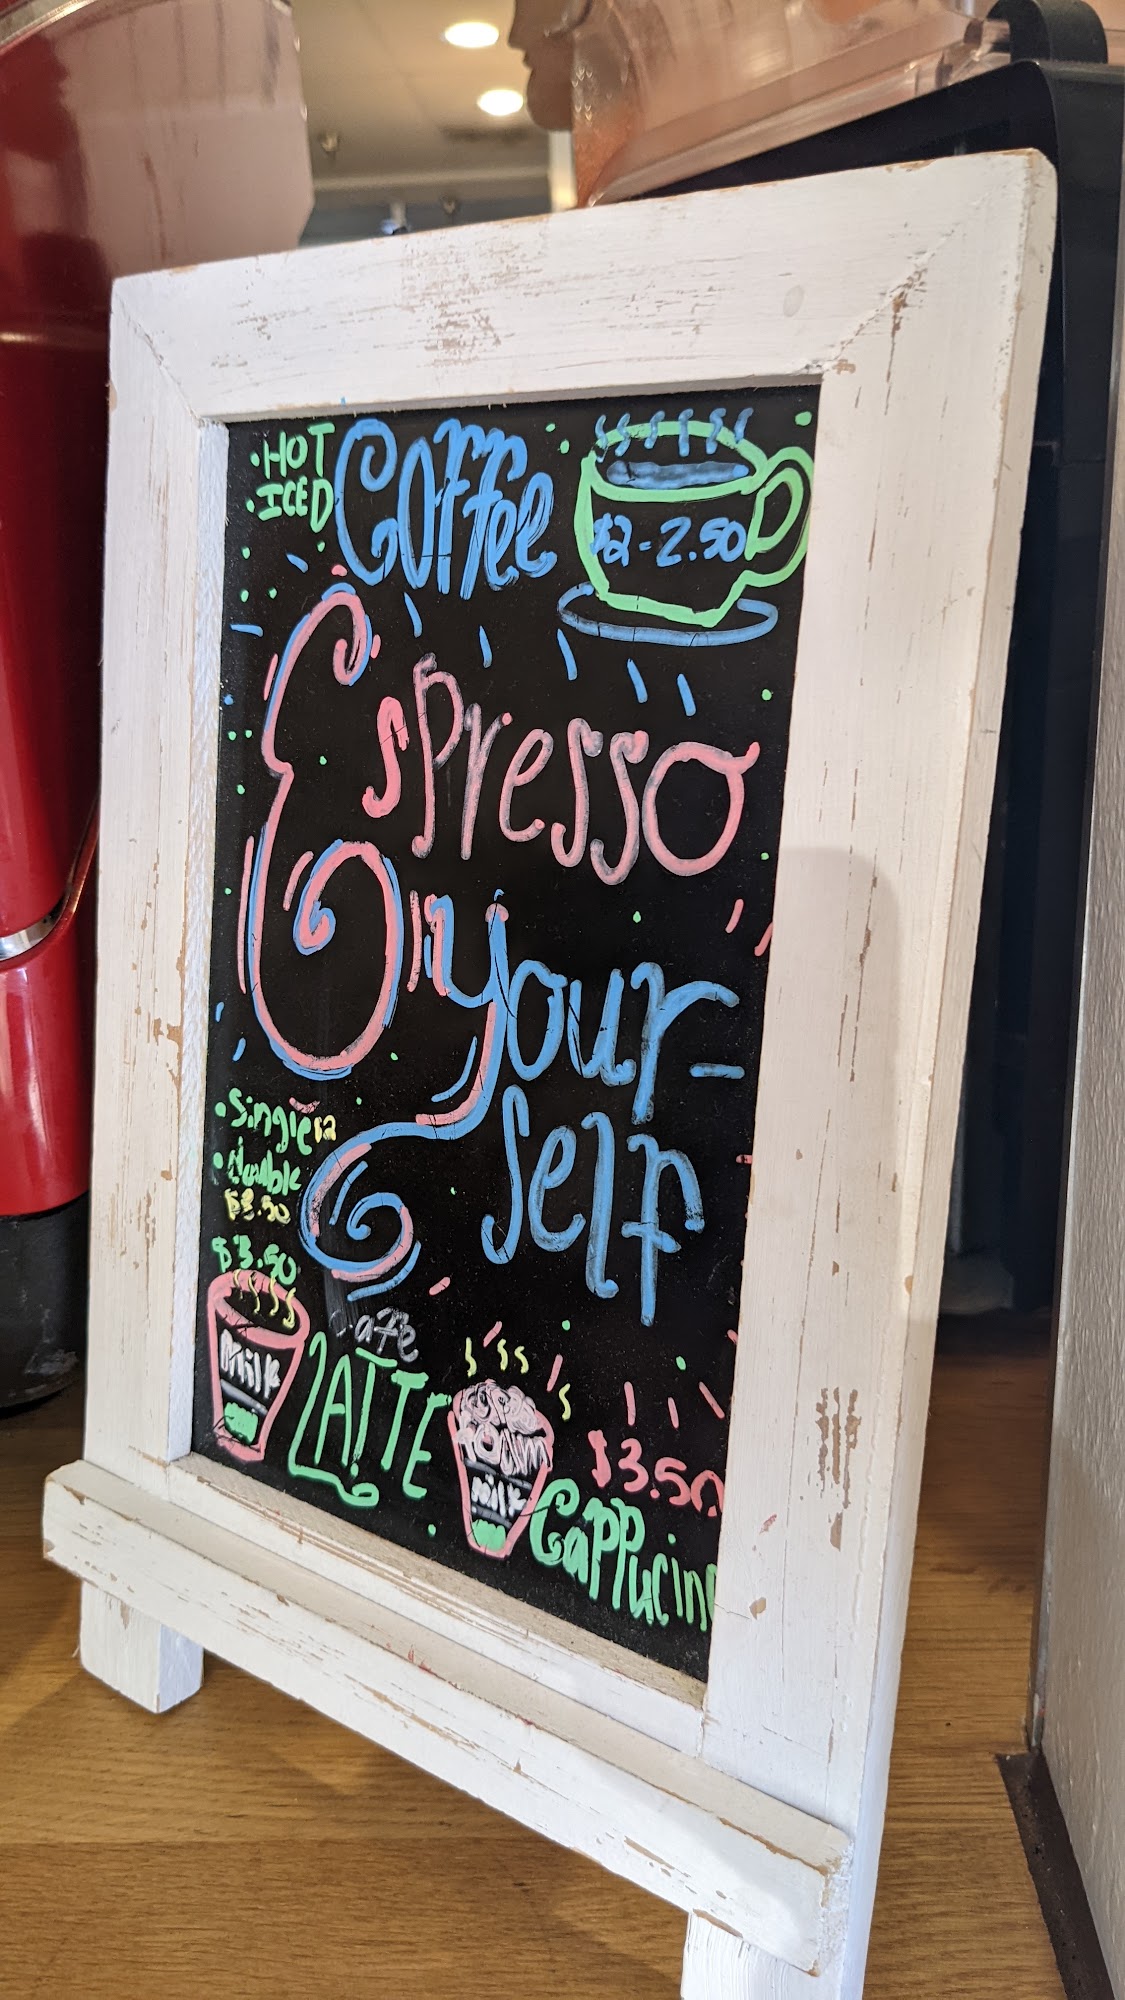 • HOT
• ICED
Coffee
$2 - 2.50
Espresso
your-
self
• Single
• double
$3.50
$3.50
Milk
Cafe
LATTE
FOAM
Milk
$3.50
Cappucino